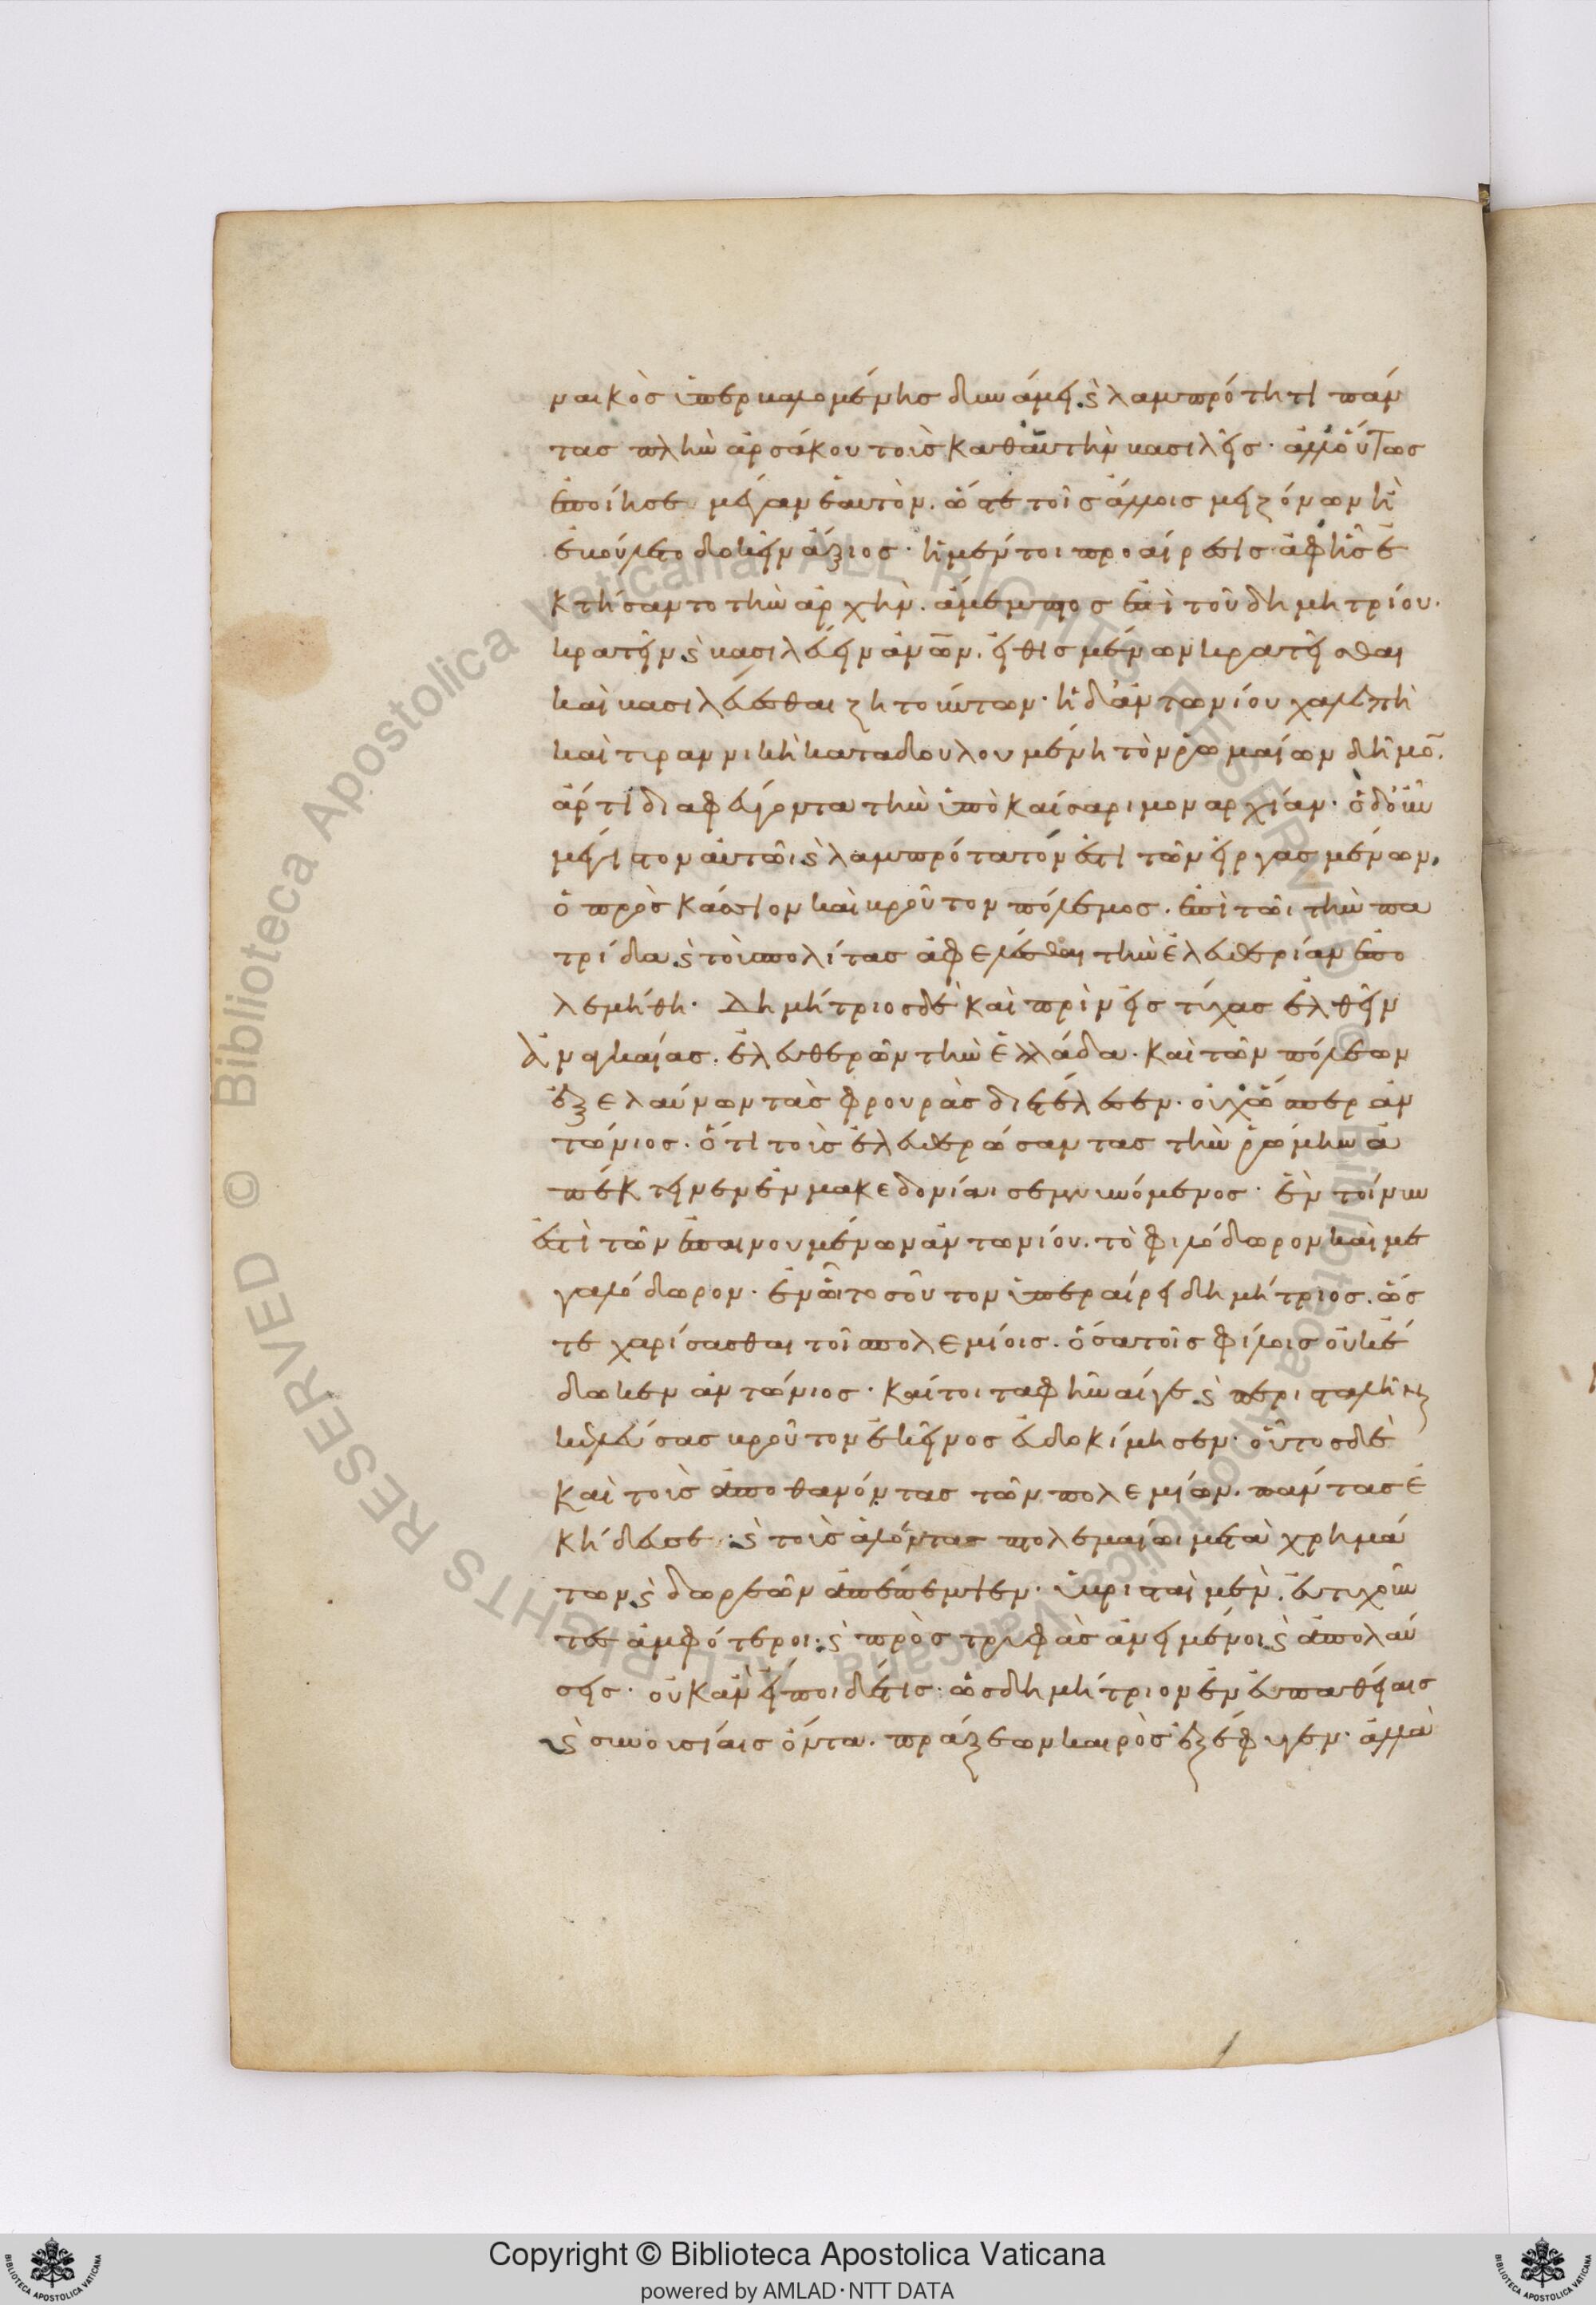 ναικὸς ὑπερβαλομένης δυνάμει ϗ λαμπρότητι πάν
τας πλὴν ἀρσάκου τοὺς καθ' αὑτὴν βασιλεῖς· ἀλλ' οὕτως
ἐποίησε μέγαν ἑαυτὸν. ὥστε τοῖς ἄλλοις μειζόνων ἢ
ἐβούλετο δοκεῖν ἄξιος· ἡ μέντοι προαίρεσις ἀφ' ἧς ἐ
κτήσαντο τὴν ἀρχὴν. ἄμεμπτος ἐπὶ τοῦ δημητρίου.
κρατεῖν ϗ βασιλεύειν ἀνθρώπων. εἰθισμένων κρατεῖσθαι
καὶ βασιλεύεσθαι ζητοῦντων· ἡ δ' ἀντωνίου χαλεπὴ
καὶ τυραννικὴ καταδουλουμένη τὸν ῥωμαίων δῆμον.
ἄρτι διαφεύγοντα τὴν ὑπὸ καίσαρι μοναρχίαν· ὃ δ' οὖν
μέγιστον αὐτῶι ϗ λαμπρότατόν ἐστι τῶν εἰργασμένων.
ὁ πρὸς κάσσιον καὶ βροῦτον πόλεμος. ἐπὶ τῶι τὴν πα
τρίδα ϗ τοὺς πολίτας ἀφελέσθαι τὴν ἐλευθερίαν ἐπο
λεμήθη· Δημήτριος δὲ καὶ πρὶν εἰς τύχας ἐλθεῖν
ἀναγκαίας. ἐλευθερῶν τὴν ἑλλάδα. καὶ τῶν πόλεων
ἐξελαύνων τὰς φρουρὰς διετέλεσεν· οὐχ ὥσπερ ἀν
τώνιος. ὅτι τοὺς ἐλευθερώσαντας τὴν ῥώμην ἀ
πέκτεινεν ἐν μακεδονίαι σεμνυνόμενος· ἓν τοίνυν
ἐστὶ τῶν ἐπαινουμένων ἀντωνίου. τὸ φιλόδωρον καὶ με
γαλόδωρον· ἐν ὧι τοσοῦτον ὑπεραίρει δημήτριος. ὥσ
τε χαρίσασθαι τοῖς πολεμίοις. ὅσα τοῖς φίλοις οὐκ ἔ
δωκεν ἀντώνιος· καίτοι ταφῆναί γε ϗ περισταλῆναι
κελεύσας βροῦτον ἐκεῖνος εὐδοκίμησεν· οὗτος δὲ
καὶ τοὺς ἀποθανόντας τῶν πολεμίων. πάντας ἐ
κήδευσε· ϗ τοὺς ἁλόντας πτολεμαίωι μετὰ χρημά
των ϗ δωρεῶν ἀπέπεμψεν· ὑβρισταὶ μὲν. εὐτυχοῦν
τες ἀμφότεροι· ϗ πρὸς τρυφὰς ἀνειμένοι ϗ ἀπολαύ
σεις· οὐκ ἂν εἴποι δέ τις· ὡς δημήτριον ἐν εὐπαθείαις
ϗ συνουσίαις ὄντα. πράξεων καιρὸς ἐξέφυγεν· ἀλλὰ
Copyright © Biblioteca Apostolica Vaticana
powered by AMLAD·NTT DATA